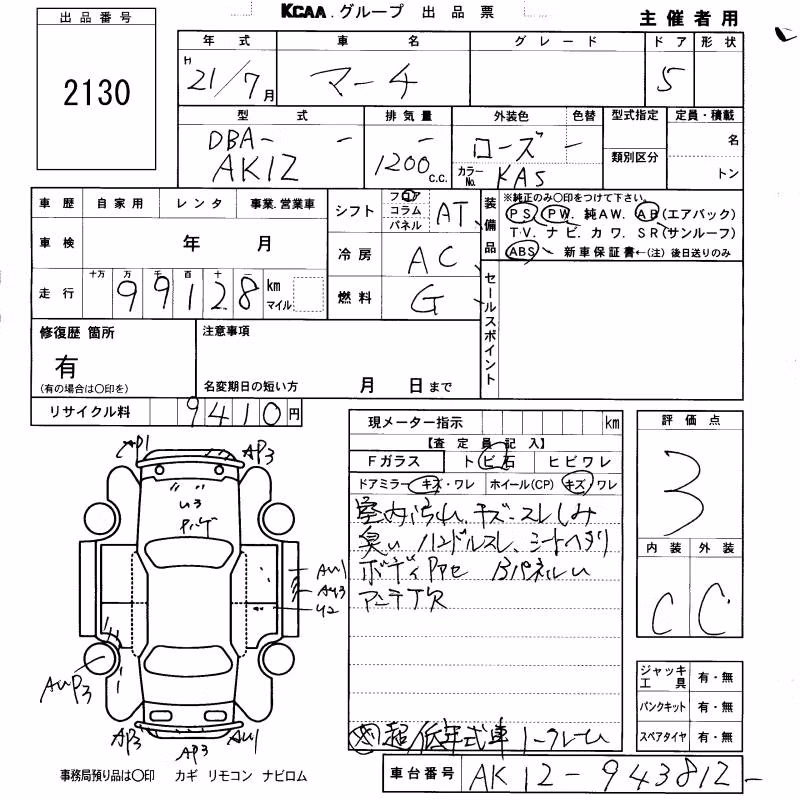 KCAA.グループ 出品票
主催者用
出品番号
2130
年式 車名 グレード ドア 形状
H21/7月 マーチ 5
型式 排気量 外装色 色替 型式指定 定員・積載
DBA- - - ローズ - 名
AK12 1200c.c. カラーNo. KA5 類別区分 トン
車歴 自家用 レンタ 事業.営業車
シフト フロア コラム パネル AT
装備品
※純正のみ〇印をつけて下さい。
PS. PW. 純AW. AB(エアバック)
TV. ナビ. カワ. SR(サンルーフ)
ABS 新車保証書←(注)後日送りのみ
車検 年 月
冷房 AC
走行 十万 万 千 百 十 一
99128 km マイル
燃料 G
セールスポイント
修復歴 箇所
有
(有の場合は〇印を)
注意事項
名変期日の短い方 月 日まで
リサイクル料 9410円
現メーター指示 km
【査定員記入】
Fガラス トビ石 ヒビワレ
ドアミラー キズ・ワレ ホイール(CP) キズ/ワレ
室内汚れ、キズ・スレ しみ
臭い ハンドルスレ、シートヘタリ
ボディ Bパネル
アンテナ欠
超低年式車 クレーム
評価点
3
内装 外装
C C
AP1 AP3
U3
AU1
AU3
U2
AUP3
AP3 AP3 AU1
ジャッキ工具 有・無
パンクキット 有・無
スペアタイヤ 有・無
事務局預り品は〇印 カギ リモコン ナビロム
車台番号 AK12-943812-